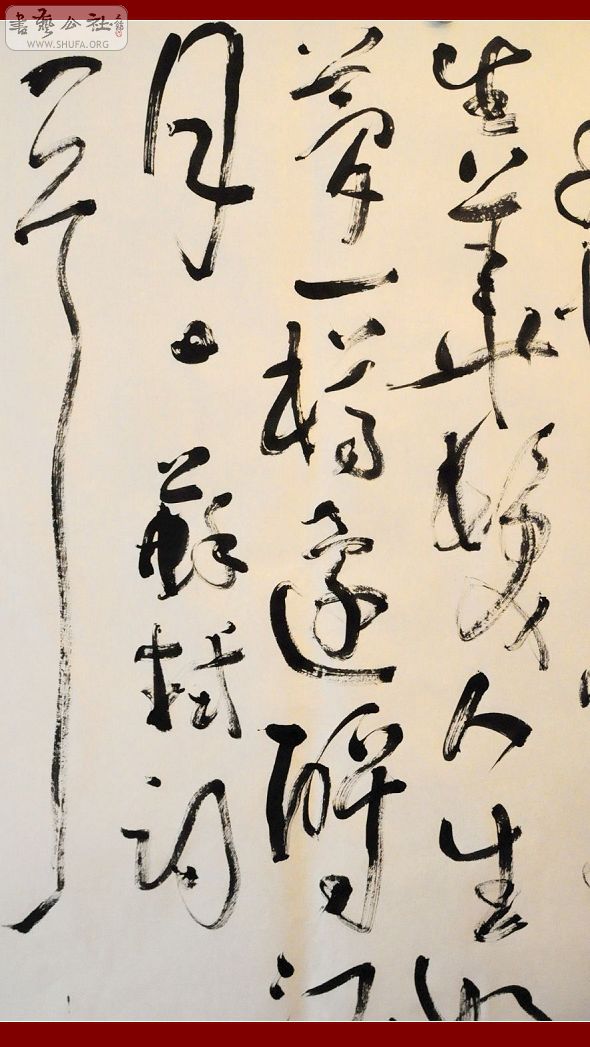 書藝公社
WWW.SHUFA.ORG
生華髮人生如
夢一樽還酹江
月 蘇軾詞